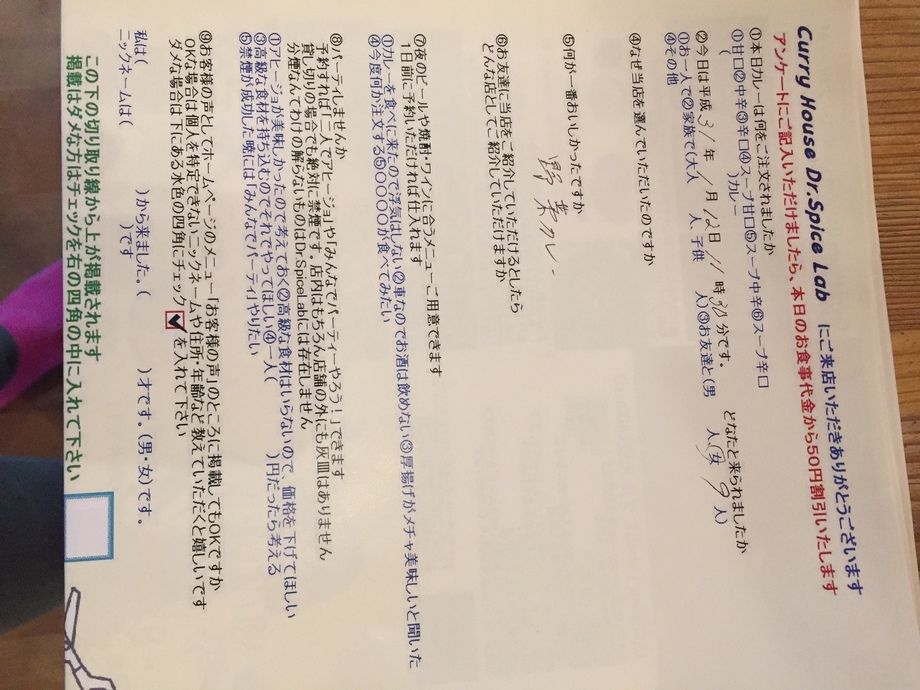 Curry House Dr.Spice Lab にご来店いただきありがとうございます
アンケートにご記入いただけましたら、本日のお食事代金から50円割引いたします
①本日カレーは何をご注文されましたか
①甘口②中辛③辛口④スープ甘口⑤スープ中辛⑥スープ辛口
( )カレー
②今日は平成31年1月12日11時30分です。 どなたと来られましたか
①お一人で②家族で(大人 人、子供 人)③お友達と(男 人(女 9 人)
④その他
④なぜ当店を選んでいただいたのですか
⑤何が一番おいしかったですか
野菜カレー
⑥お友達に当店をご紹介していただけるとしたら
どんな店としてご紹介していただけますか
⑦夜のビールや焼酎・ワインに合うメニューご用意できます
1日前に予約いただければ仕入れます
①カレーを食べに来たので浮気はしない②車なのでお酒は飲めない③厚揚げがメチャ美味しいと聞いた
④今度何か注文する⑤○○○○が食べてみたい
⑧パーティしませんか
予約すれば「二人でアヒージョ」や「みんなでパーティーやろう!」できます
貸し切りの場合でも絶対に禁煙です。店内はもちろん店舗の外にも灰皿はありません
分煙なんてわけの解らないものはDr.SpiceLabには存在しません
①アヒージョが美味しかったので考えておく②高級な食材はいらないので、価格を下げてほしい
③高級な食材を持ち込むのでそれでやってほしい④一人( )円だったら考える
⑤禁煙が成功した暁には「みんなでパーティ」やりたい
⑨お客様の声としてホームページのメニュー「お客様の声」のところに掲載してもOKですか
OKな場合は個人を特定できないニックネームや住所・年齢など教えていただくと嬉しいです
ダメな場合は下にある水色の四角にチェック✔を入れて下さい
私は( )から来ました。( )才です。(男・女)です。
ニックネームは( )です
この下の切り取り線から上が掲載されます
掲載はダメな方はチェックを右の四角の中に入れて下さい